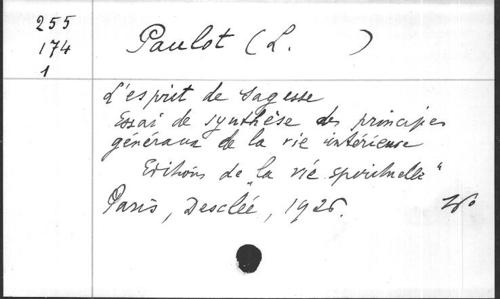 255
174
1
Paulot (L. )
L'esprit de sagesse
Essai de synthèse des principes
généraux de la vie intérieure
Editions de "la vie spirituelle"
Paris, Desclée, 1926.